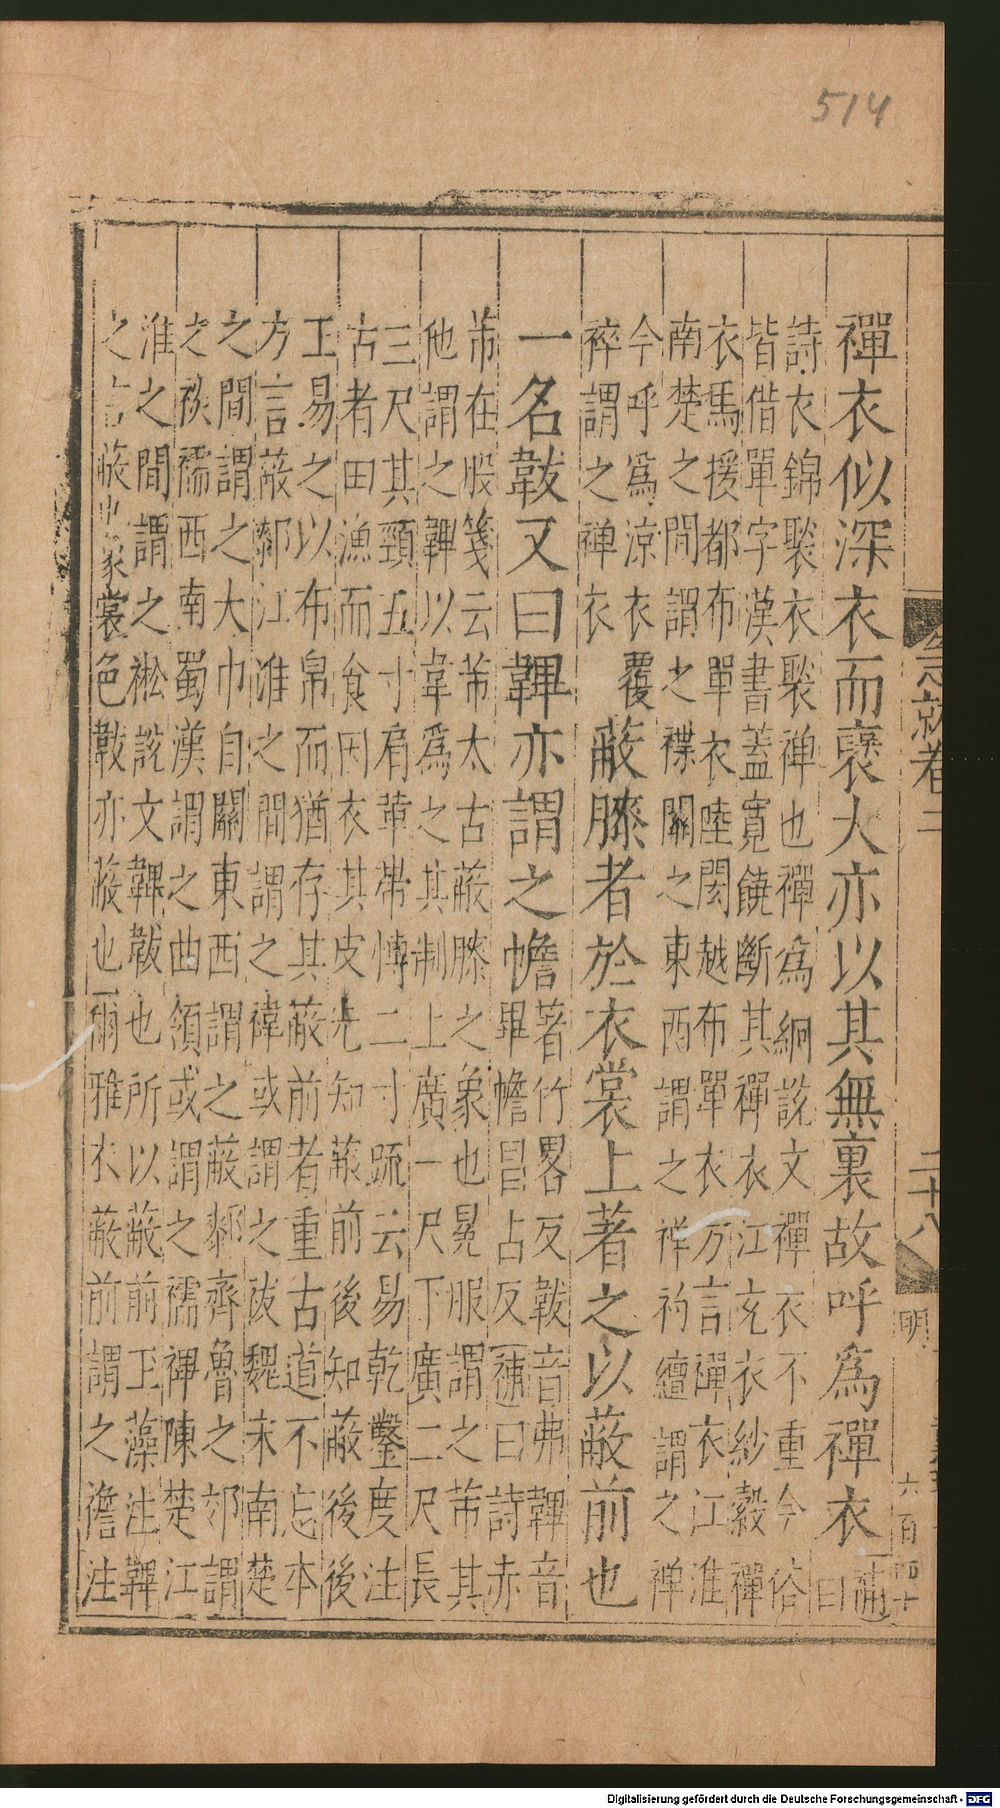 514
襌衣似深衣而襃大亦以其無裏故呼爲襌衣補
曰
詩衣錦褧衣褧襌也襌爲絅說文襌衣不重今俗
皆借單字漢書蓋寬饒斷其襌衣江充衣紗縠襌
衣馬援都布單衣陸閎越布單衣方言襌衣江淮
南楚之間謂之褋關之東西謂之禅礿繵謂之禅
今呼爲涼衣覆
稡謂之禅衣
蔽膝者於衣裳上著之以蔽前也
一名韍又曰韠亦謂之幨
著竹畧反韍音弗韠音
畢幨昌占反補曰詩赤
芾在股箋云芾太古蔽膝之象也冕服謂之芾其
他謂之韠以韋爲之其制上廣一尺下廣二尺長
三尺其頸五寸肩革帶愽二寸疏云易乾鑿度注
古者田漁而食因衣其皮先知蔽前後知蔽後後
王易之以布帛而猶存其蔽前者重古道不忘本
方言蔽䣛江淮之間謂之褘或謂之祓魏宋南楚
之間謂之大巾自關東西謂之蔽䣛齊魯之郊謂
之襦西南蜀漢謂之曲領或謂之襦裨陳楚江
淮之間謂之說文韠韍也所以蔽前玉藻注韠
之言蔽也象裳色韍亦蔽也爾雅衣蔽前謂之襜注
急就卷二
二十八
明
六百四十
Digitalisierung gefördert durch die Deutsche Forschungsgemeinschaft - DFG